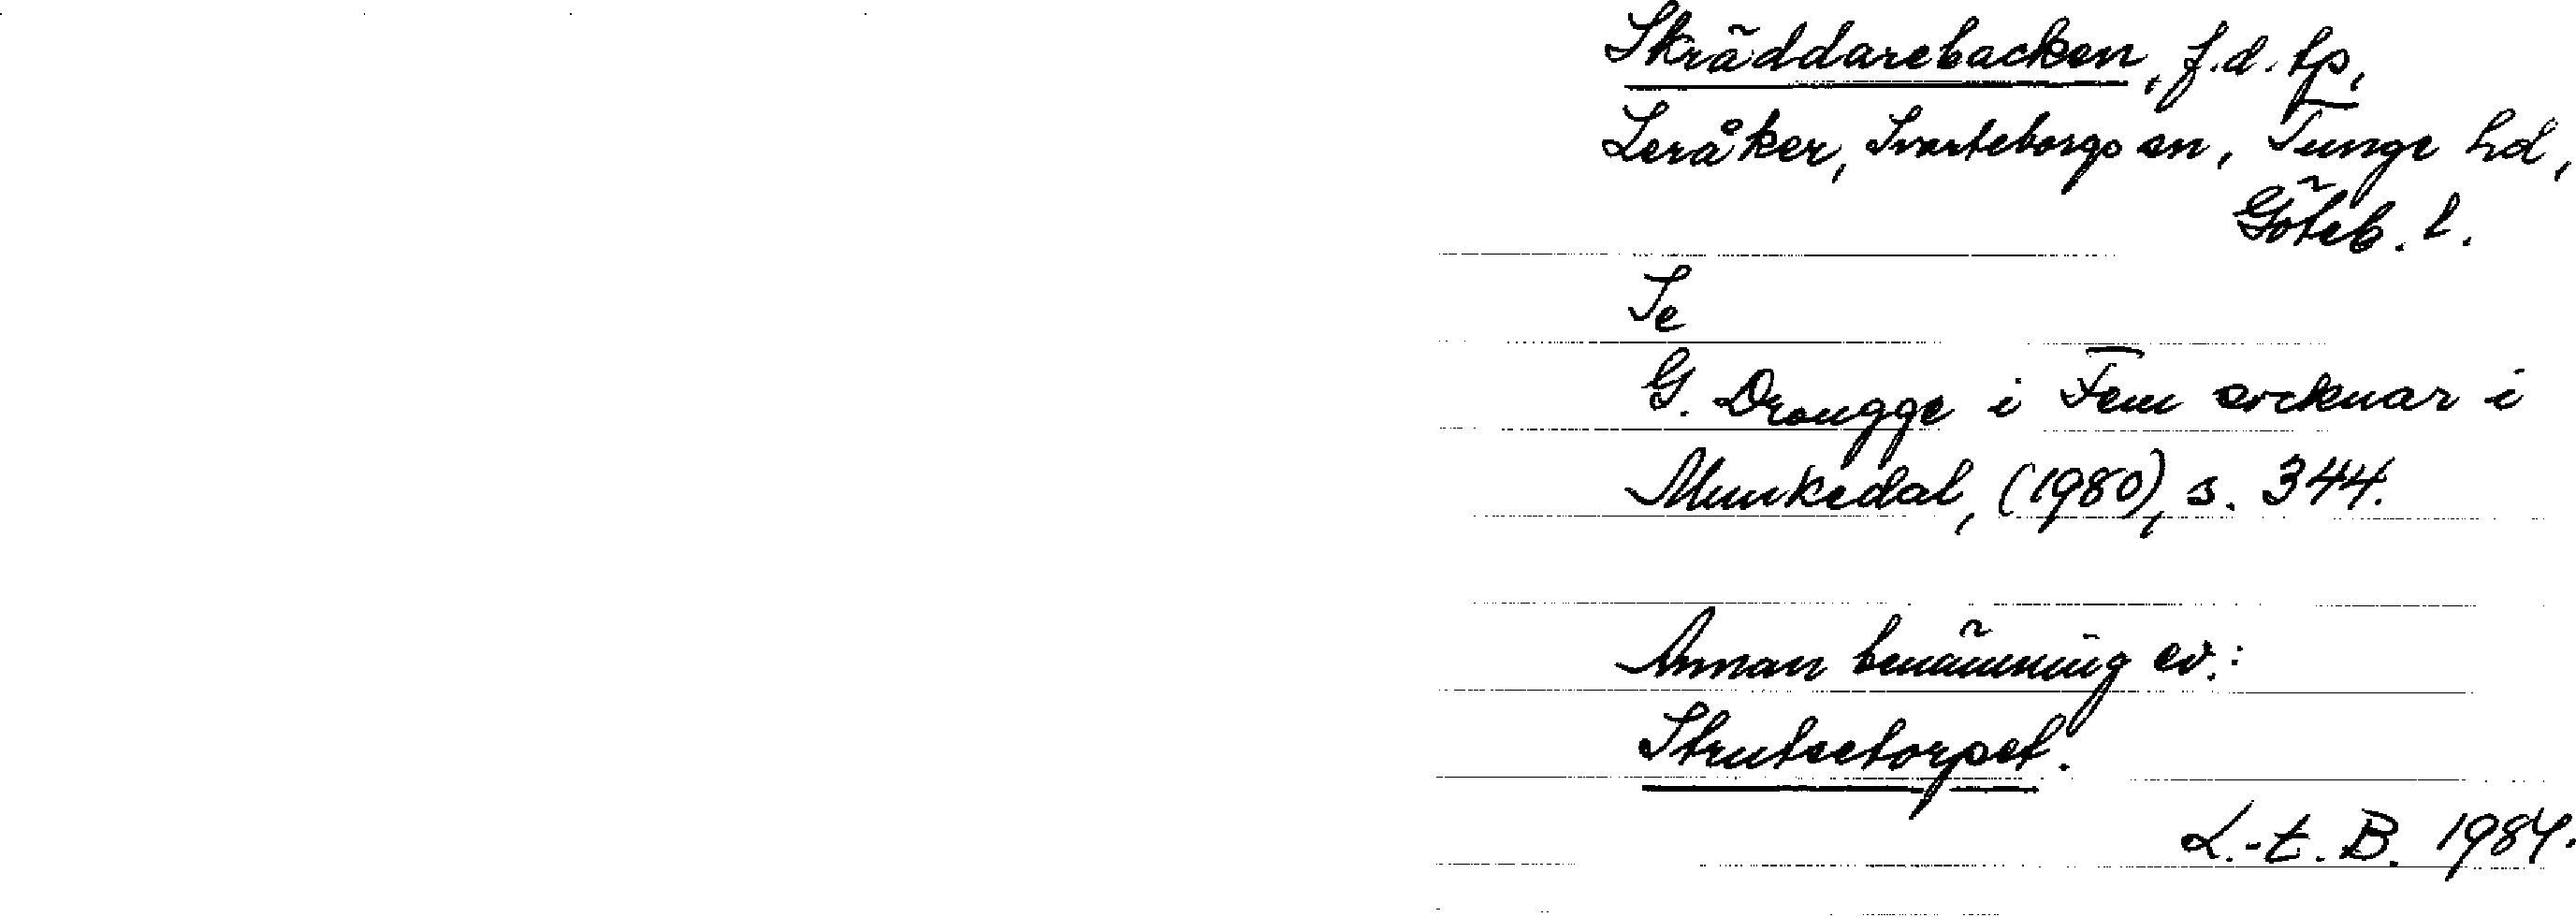 Skräddarebacken, f.d. tp,
Leråker, Svarteborgs sn, Tunge hd,
Göteb. l.
Se
G. Drougge i Fem socknar i
Munkedal, (1980), s. 344.
Annan benämning ev.:
Strutsetorpet.
L.-t. B. 1984.